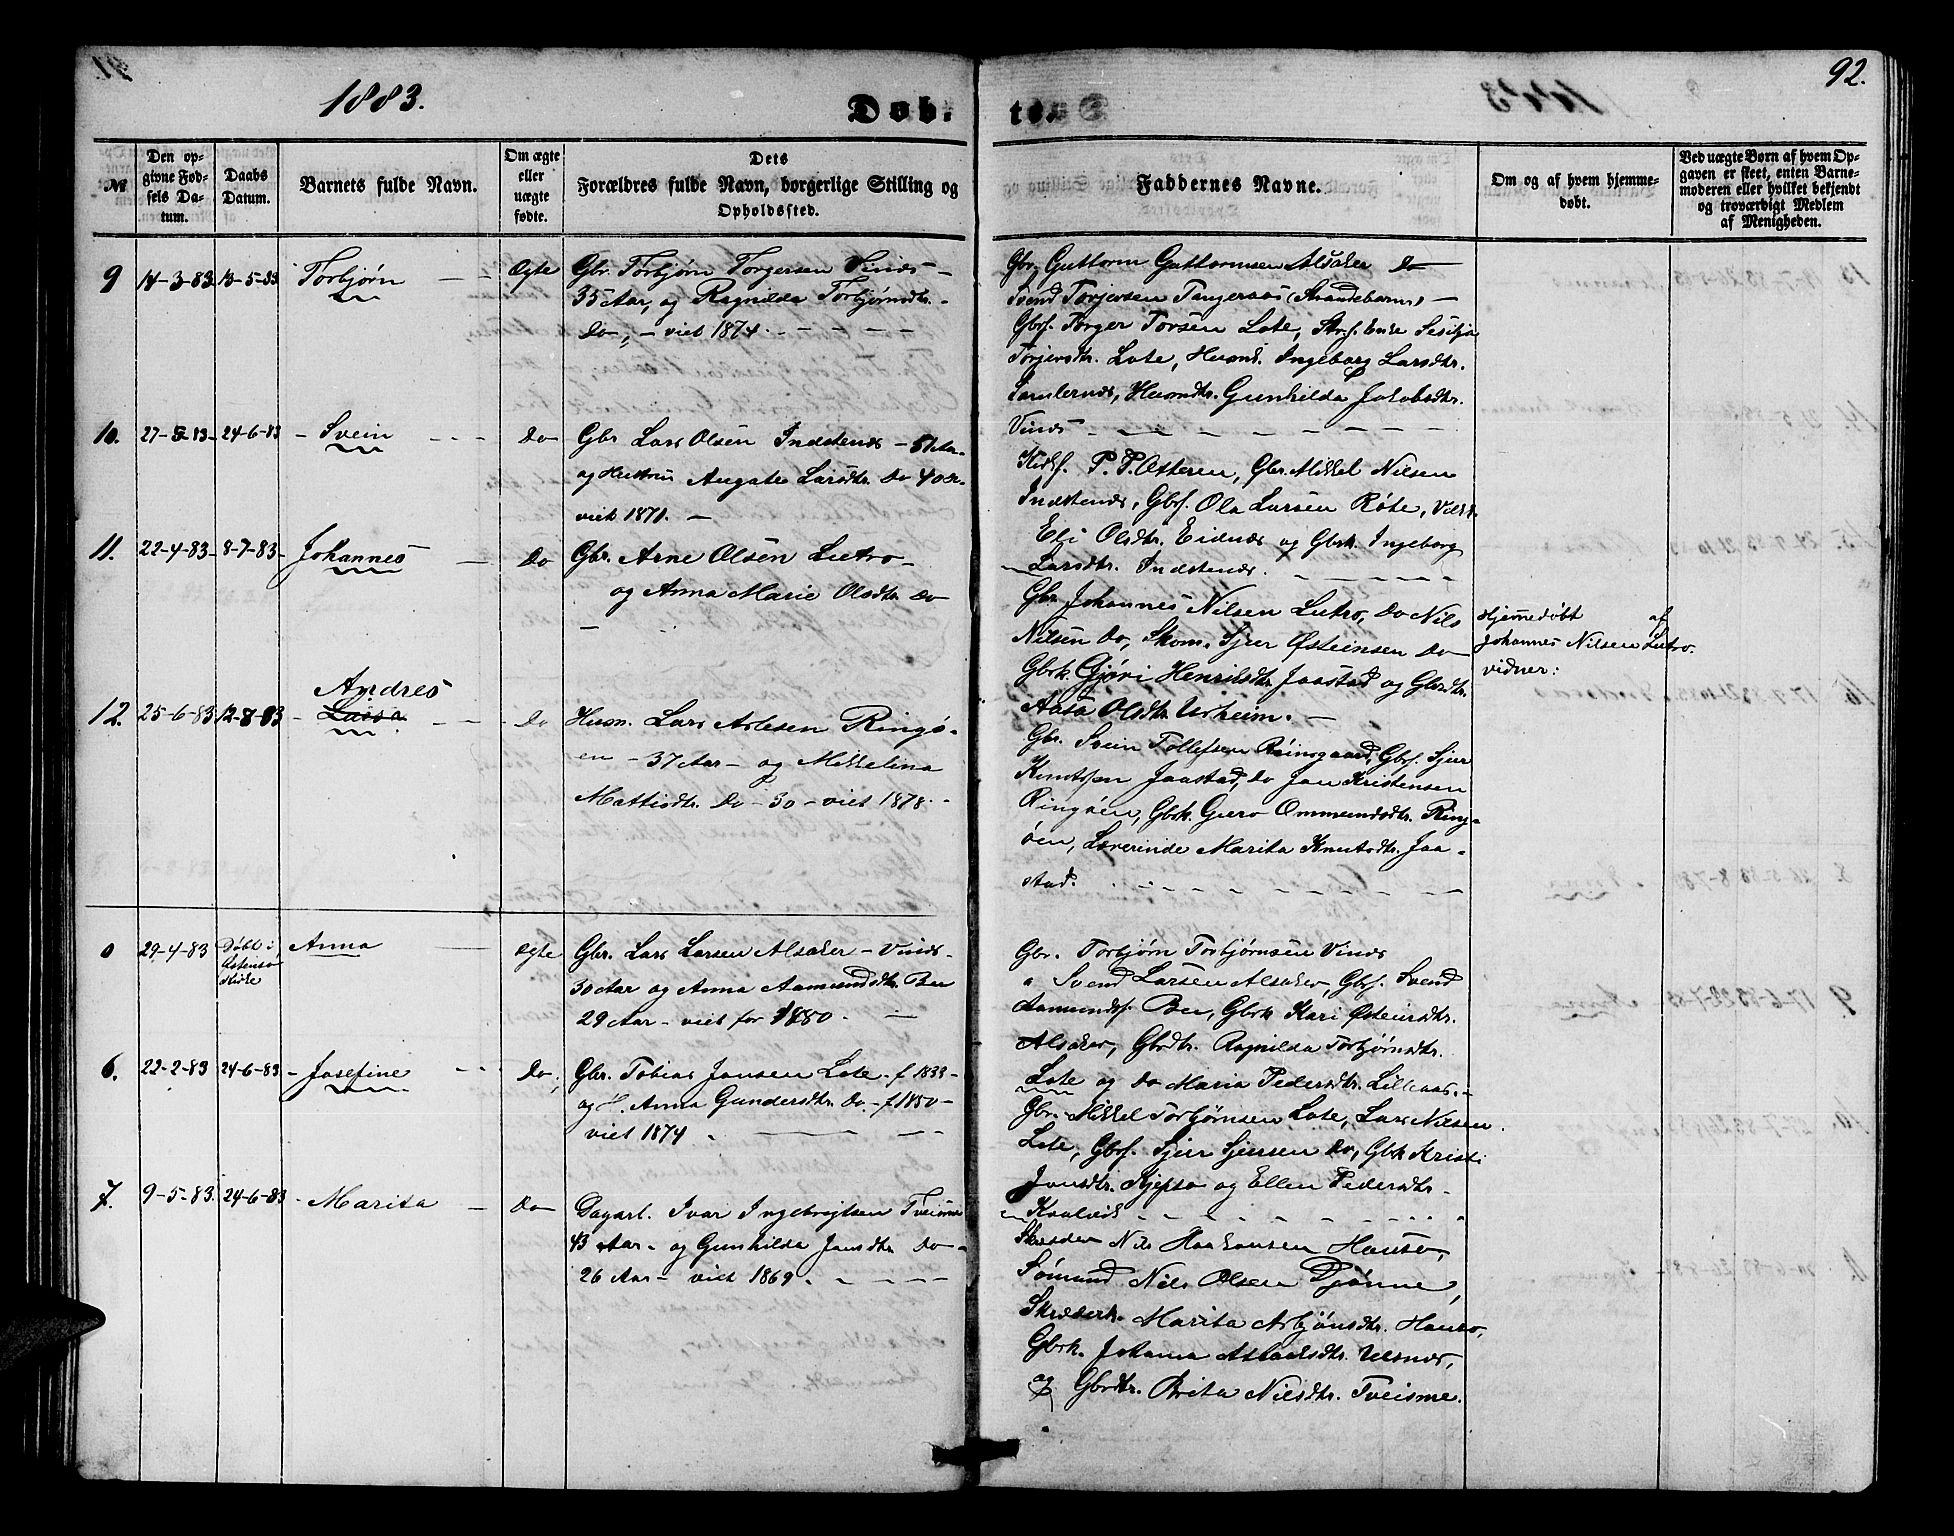 1883.
Døb-
te.
92.
№
Den opgivne Fødsels Datum.
Daabs Datum.
Barnets fulde Navn.
Om ægte eller uægte fødte.
Dets Forældres fulde Navn, borgerlige Stilling og Opholdssted.
Faddernes Navne.
Om og af hvem hjemmedøbt.
Ved uægte Børn af hvem Opgaven er skeet, enten Barnemoderen eller hvilket bekjendt og troværdigt Medlem af Menigheden.
9 14-3-83 13-5-83 Torbjørn Ægte
Gbr. Torbjørn Torgersen Vinæs –
35 Aar, og Ragnilda Torbjørnsdtr. –
Do, – viet 1874. – – – –
Gbr. Guttorm Guttormsen Alsaker Do
Svend Torjersen Tangeraas (Strandebarm) –
Gbrs. Torger Torsen Lote, Enke
Torjersdtr. Lote, Husmk. Ingeborg Larsdtr.
Husmdtr. Gunhilda Jakobsdtr.
Vinæs – – – –
10. 27- -83 – 24-6-83 – Svein – – – Do
Gbr. Lars Olsen Indstenæs – 51 Aar –
og Hustru Aagate Larsdtr. Do 40 –
viet 1871. –
P. P. Østeren, Gbr. Mikkel Nilsen
Indstenæs, Gbrs. Ola Larsen Røte,
Eli Olsdtr. Eidnæs og Gbrk. Ingeborg
Larsdtr. Indstenæs.
11. 22-4-83 – 8-7-83 – Johannes – Do
Gbr. Arne Olsen Lutro –
og Anna Marie Olsdtr. Do
Gbr. Johannes Nilsen Lutro, Do Nils
Nilsen Do, Skom. Sjur Østeinsen Do –
Gbrk. Gjøri Henriksdtr. Jaastad og Gbrdtr.
Aasa Olsdtr. Urheim. –
Hjemmedøbt af
Johannes Nilsen Lutro.
vidner:
Andres
12. 25-6-83 12-8-83 – Do
Husm. Lars Arlesen Ringø-
en – 37 Aar – og Mikkelina
Mattisdtr. Do – 30 – viet 1878. –
Gbr. Svein Tollefsen Gbrs. Sjur
Knutsen Jaastad, Do Jan Kristensen
Ringøen, Gbrk. Guro Ommundsdtr. Ring-
øen, Lærerinde Marita Knutsdtr. Jaa-
stad.
0 29-4-83 Døbt i Østensø Kirke Anna – Ægte
Gbr. Lars Larsen Alsaker – Vinæs –
30 Aar og Anna Aamundsdtr. Ber
29 Aar – viet før 1880. –
Gbr. Torbjørn Torbjørnsen Vinæs
" Svend Larsen Alsaker, Gbrs. Svend
Aamundss. Ber, Gbrk. Kari Østeinsdtr.
Alsaker, Gbrdtr. Ragnilda Torbjørnsdtr.
Lote og Do Maria Pedersdtr. Lilleaas. –
6. 22-2-83 24-6-83 – Josefine – – Do
Gbr. Tobias Jansen Lote – f 1833 –
og H. Anna Gundersdtr. Do – f 1850 –
viet 1874.
Gbr. Mikkel Torbjørnsen Lote, Lars Nilsen
Lote, Gbrs. Sjur Sjursen Do, Gbrk. Kristi
Jonsdtr. Skjepsø og Ellen Pedersdtr. –
Kvalvik
7. 9-5-83 24-6-83 – Marita – Do
Dagarb. Ivar Ingebrigtsen Tveisme
43 Aar – og Gunhilda Jansdtr. Do –
26 Aar – viet 1869. – – – –
Skræder Nils Haakonsen Hauso,
Sømand Nils Olsen Djønne,
Skræderk. Marita Arbjønsdtr. Hauso,
Gbrk. Johanna Aslaksdtr. Utsnæs,
og Gbrdtr. Brita Nilsdtr. Tveisme.